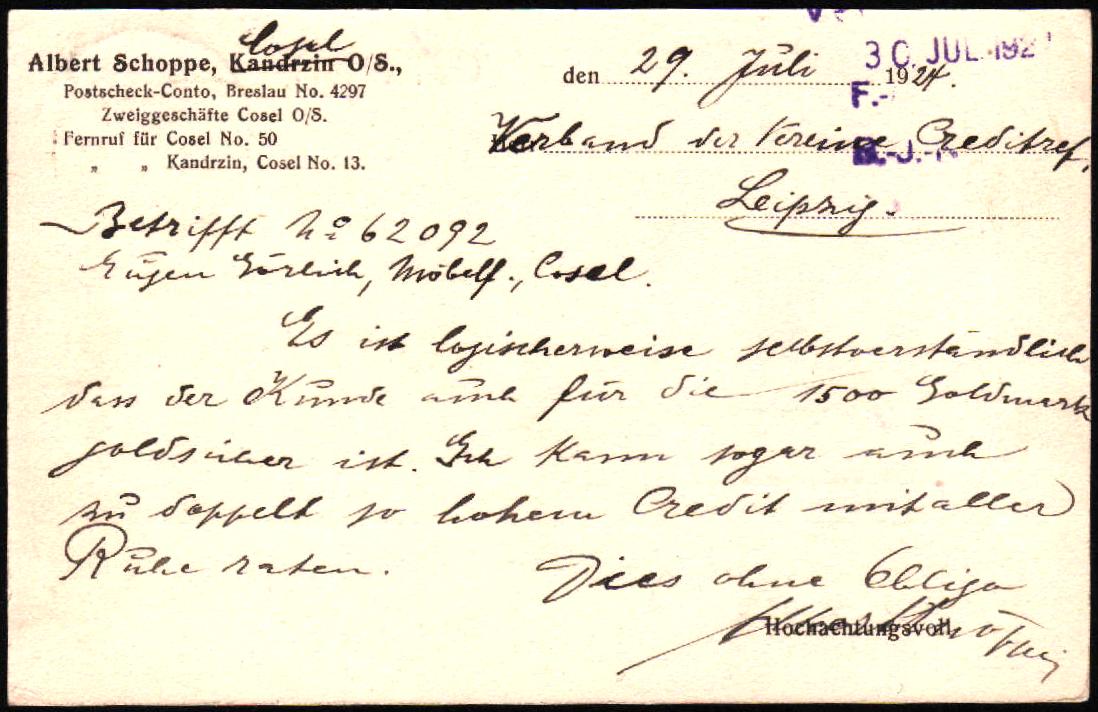 Cosel
Albert Schoppe, Kandrzin O/S.,
Postscheck-Conto, Breslau No. 4297
Zweiggeschäfte Cosel O/S.
Fernruf für Cosel No. 50
„ „ Kandrzin, Cosel No. 13.
den 29. Juli 1924.
30. JUL. 192
F.-
Verband der Vereine Creditref.
Leipzig.
Betrifft No 62092
Eugen Görlich, Möbelf., Cosel.
Es ist logischerweise selbstverständlich
dass der Kunde auch für die 1500 Goldmark
goldsicher ist. Ich kann sogar auch
zu doppelt so hohem Credit mit aller
Ruhe raten.
Dies ohne Obligo
Hochachtungsvoll
Albert Schoppe